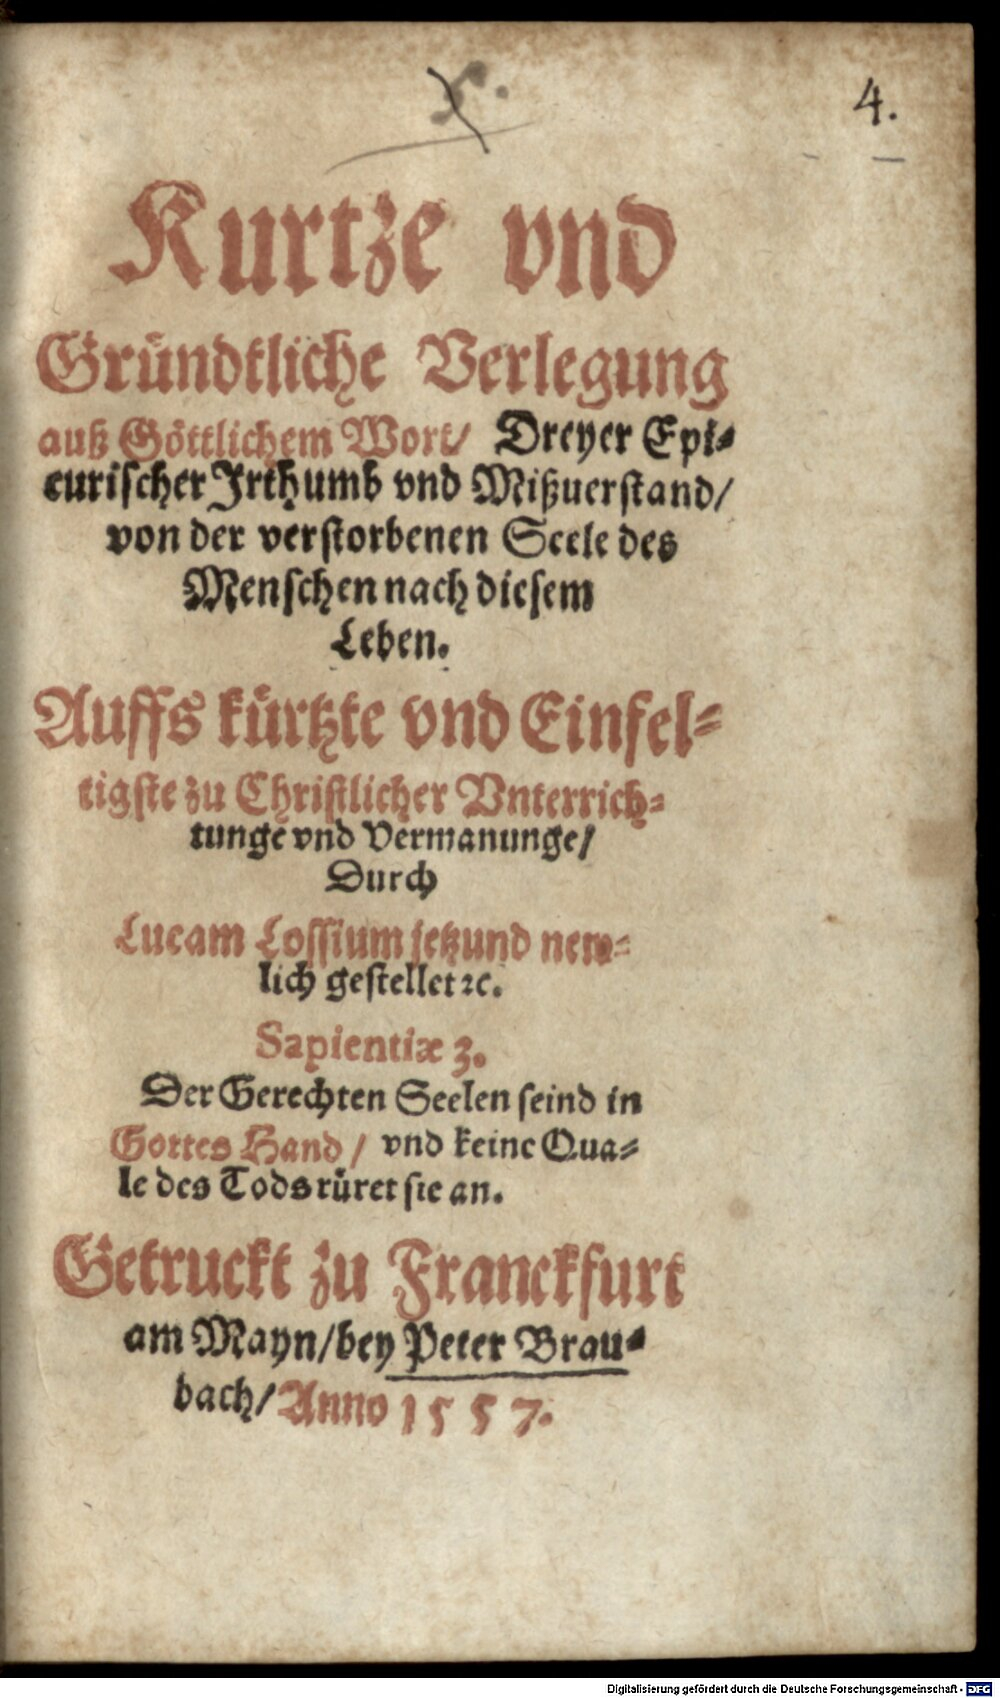 4.
Kurtze vnd
Gründtliche Verlegung
auß Göttlichem Wort/ Dreyer Epi-
curischer Irthumb vnd Mißuerstand/
von der verstorbenen Seele des
Menschen nach diesem
Leben.
Auffs kürtzte vnd Einfel-
tigste zu Christlicher Vnterrich-
tunge vnd Vermanunge/
Durch
Lucam Lossium jetzund new-
lich gestellet ꝛc.
Sapientiæ 3.
Der Gerechten Seelen seind in
Gottes Hand / vnd keine Qua-
le des Tods rüret sie an.
Getruckt zu Franckfurt
am Mayn/bey Peter Brau-
bach/ Anno 1557.
Digitalisierung gefördert durch die Deutsche Forschungsgemeinschaft - DFG